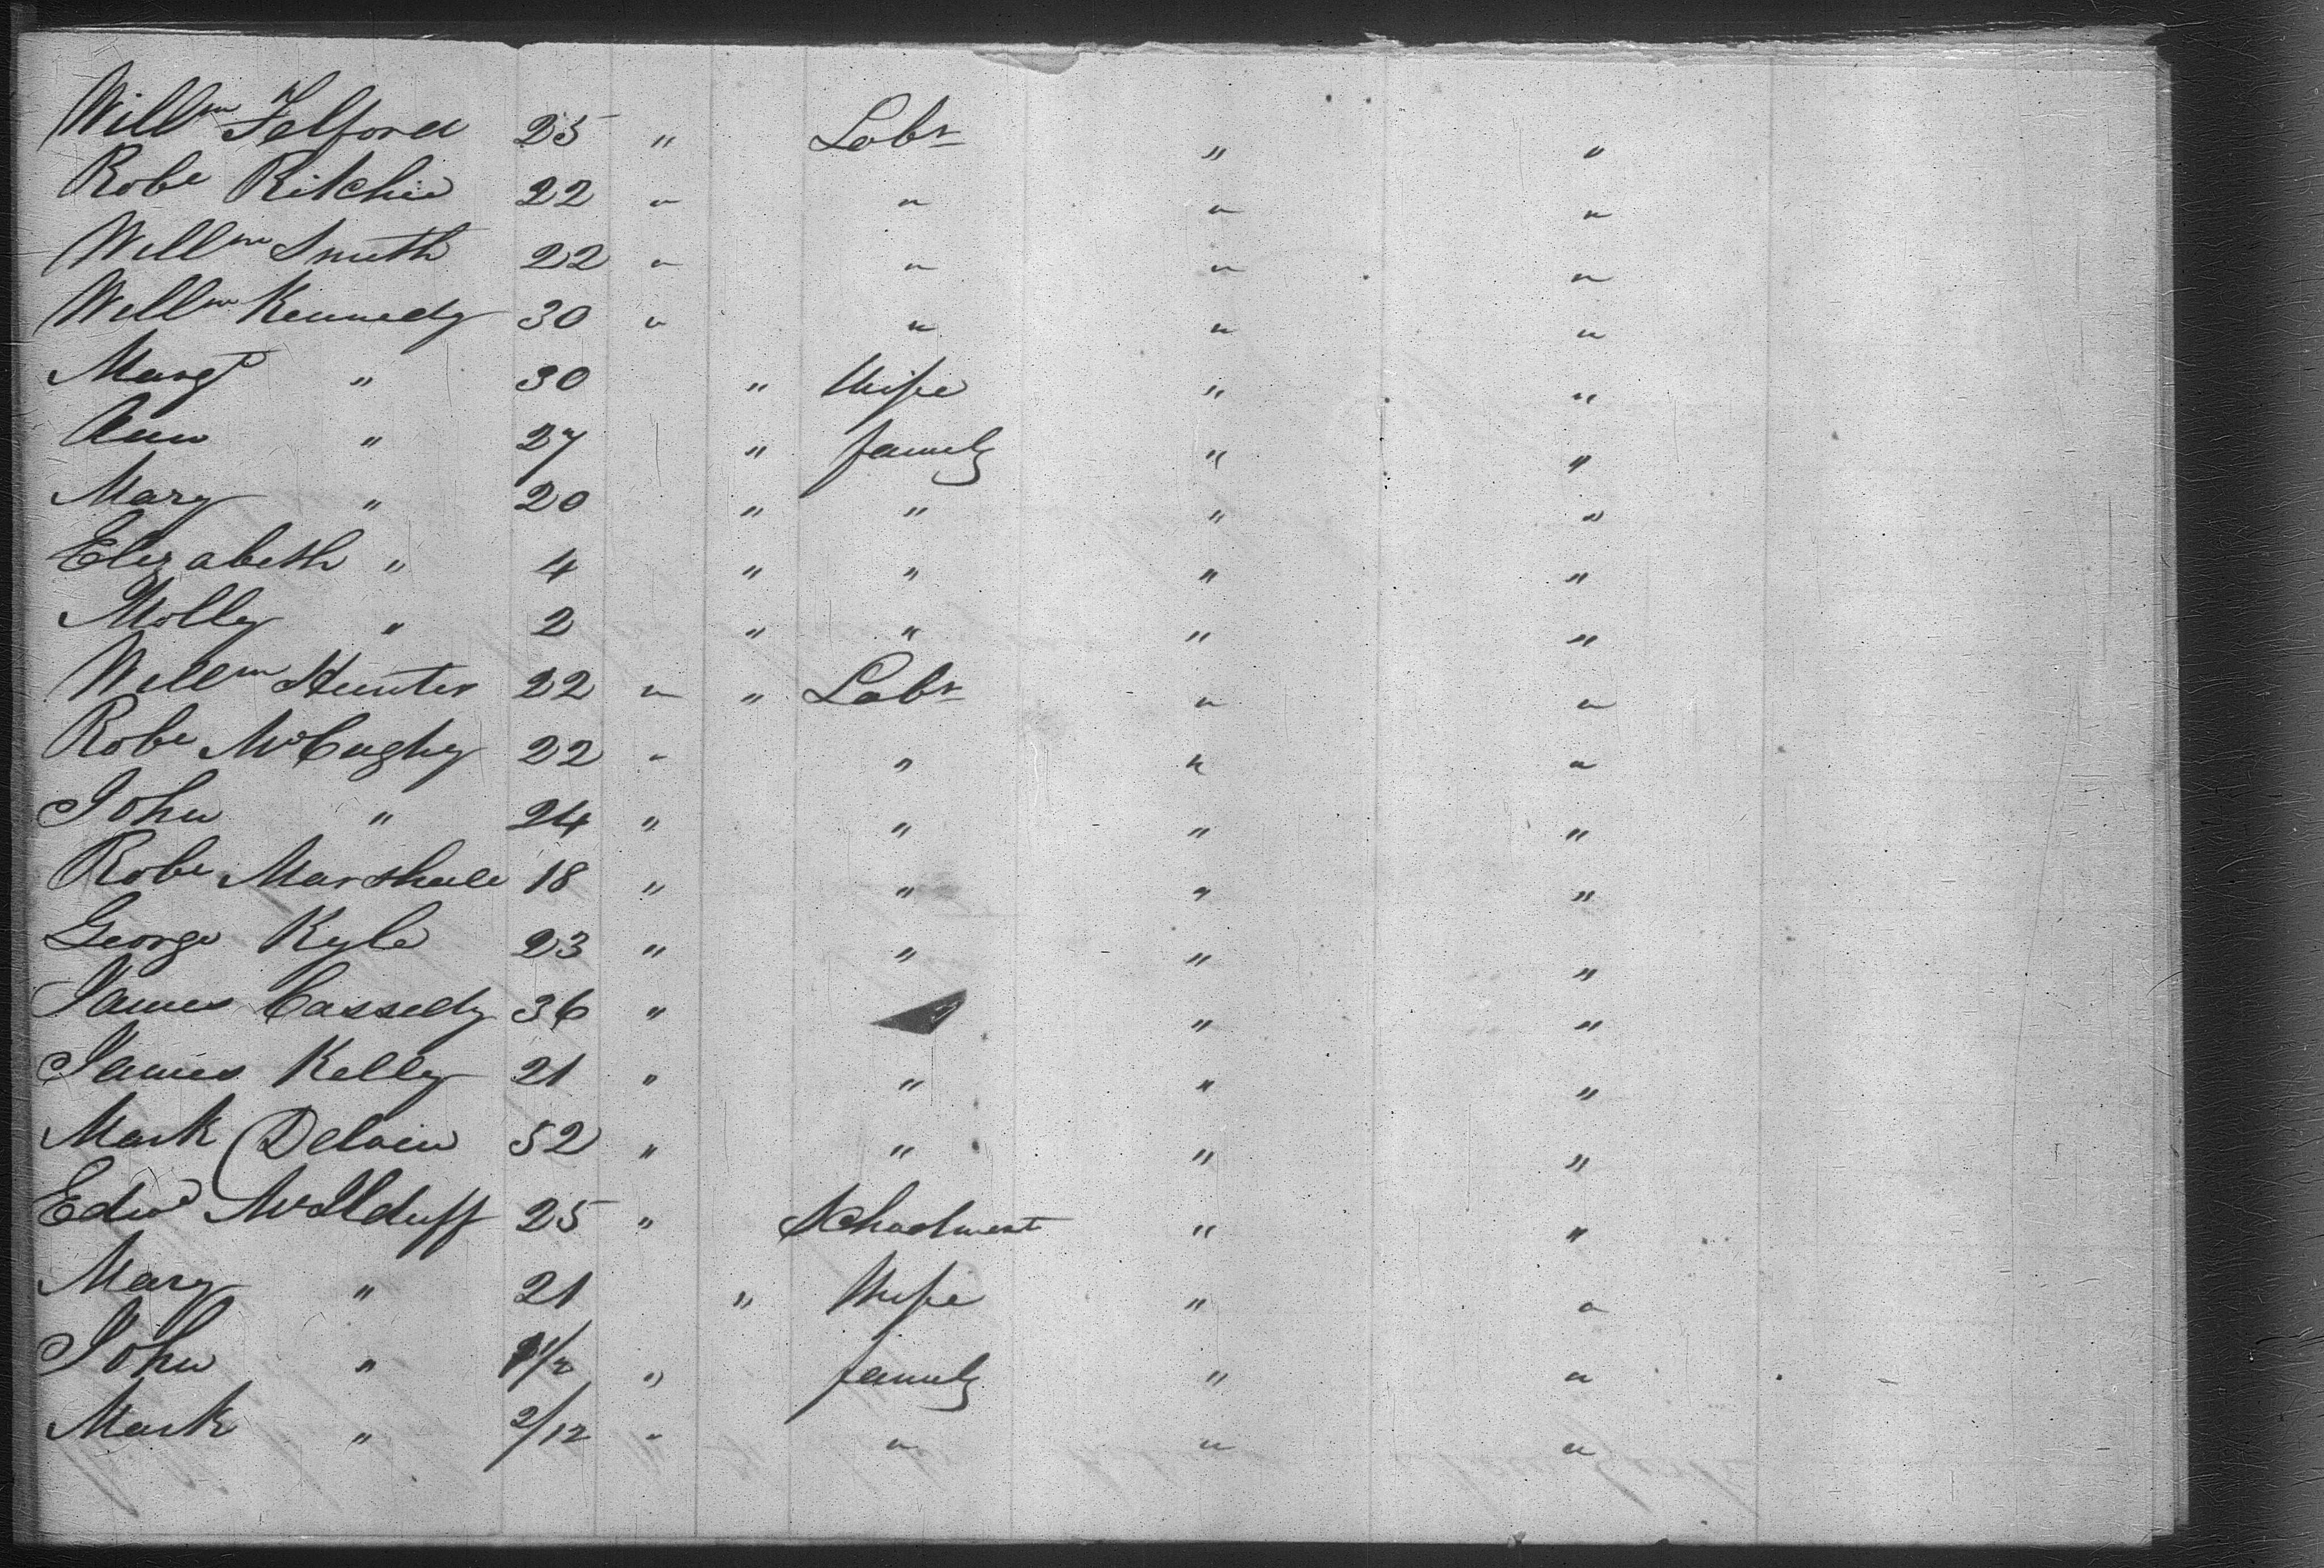 Willm Telford 25 " Labr " "
Robt Ritchie 22 " " " "
Willm Smith 22 " " " "
Willm Kennedy 30 " " " "
Margt " 30 " Wife " "
Ann " 27 " family " "
Mary " 20 " " " "
Elizabeth " 4 " " " "
Molly " 2 " " " "
Willm Hunter 22 " " Labr " "
Robt McCughy 22 " " " "
John " 24 " " " "
Robt Marshall 18 " " " "
George Kyle 23 " " " "
James Cassedy 36 " " "
James Kelly 21 " " " "
Mark Delvin 52 " " " "
Edwd McIlduff 25 " Schoolmast " "
Mary " 21 " Wife " "
John " " family " "
Mark " 2/12 " " " "